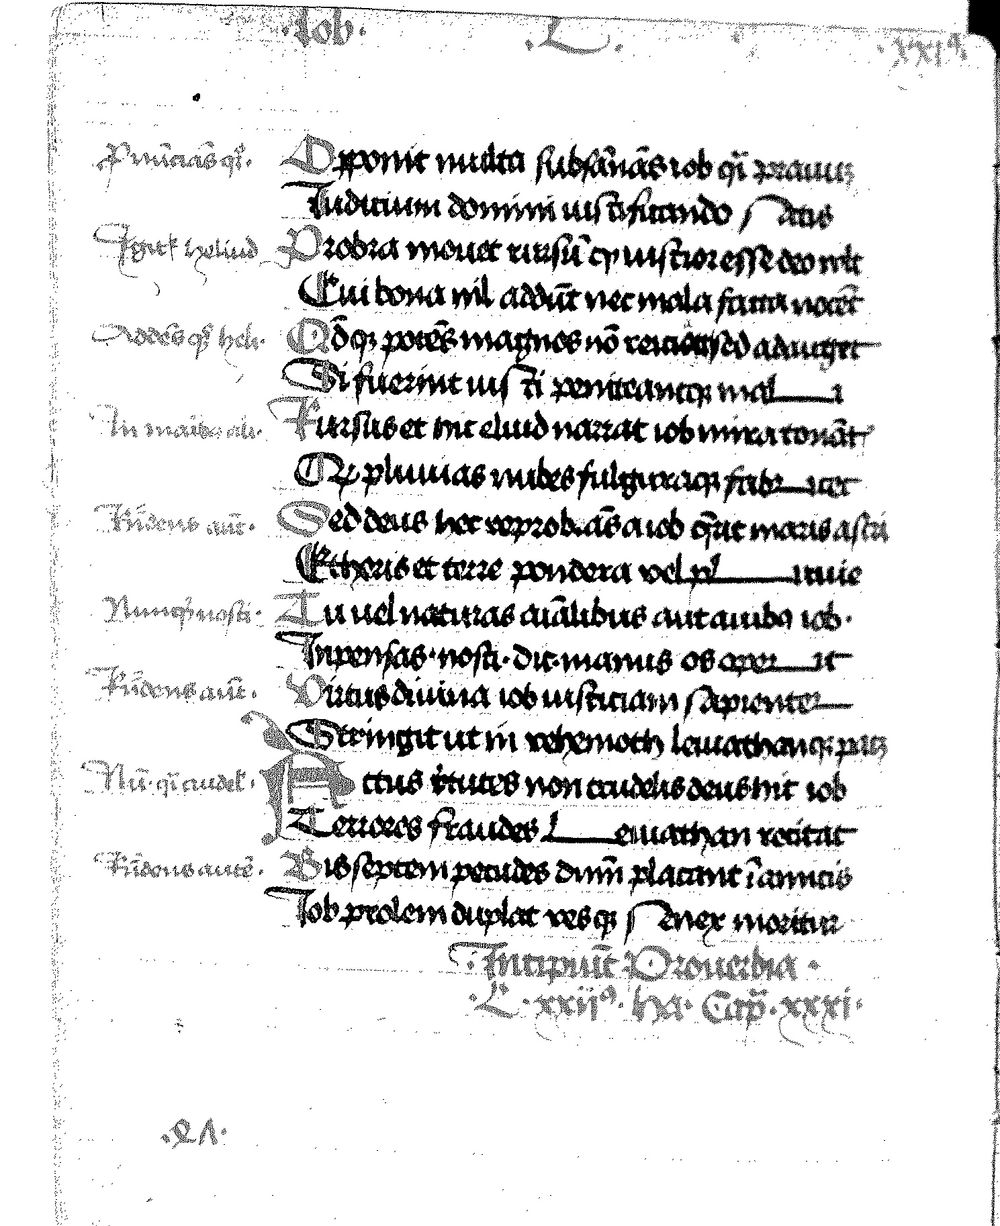 ·Iob· ·L· ·xxiꝰ·
Pnūciās qͦꝫ· Opponit multa subsānās iob qͥ prauuꝫ
Iudicium domini iustificando satis
Igitͬ heliud Probra mouet rursū cp iustior esse deo
Cui bona nil addūt nec mala facta nocēt
Addēs qͦꝫ heli· Qd̄qꝫ potēs magnos nō sed adauget
Si fuerint iusti peniteantqꝫ mal i
Rursus et hic eliud narrat iob mira tonāt
Qꝫ pluuias nubes fulguraqꝫ fabr icet
Rn̄dens aut̄· Sed deus hec reprobās a iob q̄rit maris
Etheris et terre pondera vel pl uuie
Nunqͣ nosti· Tu vel naturas aīalibus aut auibꝰ iob·
Inpensas· nosti· dic· manus os aper it
Rn̄dens aut̄· Virtus diuina iob iusticiam sapienter
Stringit ut in vehemoth leuiathanqꝫ
Nū· qͥ crudel̄· Actus v̄tutes non crudelis deus hic iob
Terrores fraudes L euiathan recitat
Rn̄dens autē· Bis septem pecudes dnm̄ placant īamicis
Iob prolem duplat resqꝫ senex moritur
·Incipiūt Prouerbia·
·L·xxiiꝰ· ha· Cap̄·xxxi·